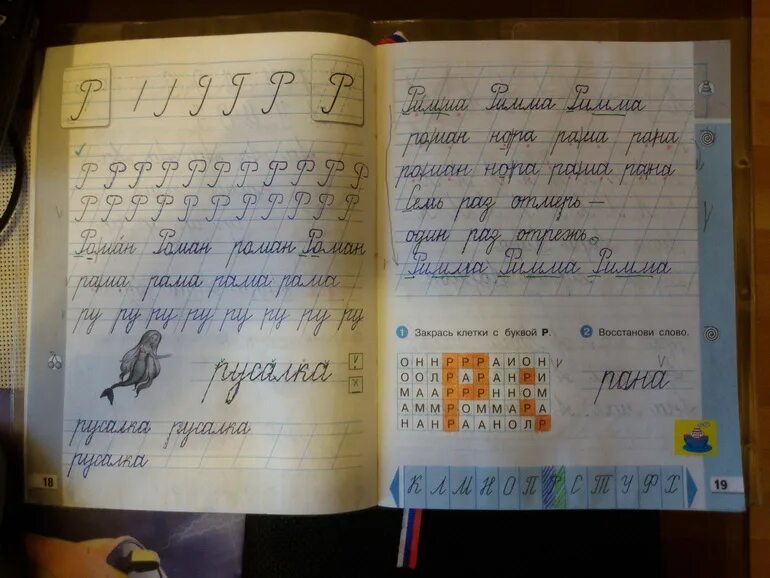 Р Р Р
Р Р Р Р Р Р Р Р Р Р Р
Р Р Р Р Р Р Р Р Р Р Р
Роман Роман роман Роман
рама рама рама рама
ру ру ру ру ру ру ру ру
русалка
русалка русалка
русалка
18
Римма Римма Римма
роман нора рама рана
роман нора рама рана
Семь раз отмерь —
один раз отрежь.
Римма Римма Римма
1 Закрась клетки с буквой Р.
О Н Н Р Р Р А И О Н
О О Л Р А Р А Н Р И
М А А Р Р Р Н Н О М
А М М Р О М М А Р А
Н А Н Р А А Н О Л Р
2 Восстанови слово.
рана
К Л М Н О П Р С Т У Ф Х
19